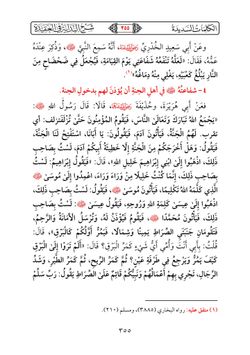 الكلمات السديدة
٣٥٥
شرح البداية في العقيدة
وعَنْ أَبِي سَعِيدٍ الخُدْرِيِّ رضي الله عنه، أَنَّهُ سَمِعَ النَّبِيَّ ﷺ، وَذُكِرَ عِنْدَهُ
عَمُّهُ، فَقَالَ: «لَعَلَّهُ تَنْفَعُهُ شَفَاعَتِي يَوْمَ القِيَامَةِ، فَيُجْعَلُ فِي ضَحْضَاحٍ مِنَ
النَّارِ يَبْلُغُ كَعْبَيْهِ، يَغْلِي مِنْهُ دِمَاغُهُ»(١).
٤ - شفاعَتُهُ ﷺ في أهل الجنةِ أن يُؤذَنَ لهم بدخولِ الجنةِ.
فعَنْ أَبِي هُرَيْرَةَ، وحُذَيْفَةَ رضي الله عنهما، قَالَا: قَالَ رَسُولُ اللهِ ﷺ:
«يَجْمَعُ اللهُ تَبَارَكَ وَتَعَالَى النَّاسَ، فَيَقُومُ المُؤْمِنُونَ حَتَّى تُزْلَفَ(تزلف: أي
تقرب. لَهُمُ الجَنَّةُ، فَيَأْتُونَ آدَمَ، فَيَقُولُونَ: يَا أَبَانَا، اسْتَفْتِحْ لَنَا الجَنَّةَ،
فَيَقُولُ: وَهَلْ أَخْرَجَكُمْ مِنَ الجَنَّةِ إِلَّا خَطِيئَةُ أَبِيكُمْ آدَمَ، لَسْتُ بِصَاحِبِ
ذَلِكَ، اذْهَبُوا إِلَى ابْنِي إِبْرَاهِيمَ خَلِيلِ اللهِ»، قَالَ: «فَيَقُولُ إِبْرَاهِيمُ: لَسْتُ
بِصَاحِبِ ذَلِكَ، إِنَّمَا كُنْتُ خَلِيلًا مِنْ وَرَاءَ وَرَاءَ، اعْمِدُوا إِلَى مُوسَى ﷺ
الَّذِي كَلَّمَهُ اللهُ تَكْلِيمًا، فَيَأْتُونَ مُوسَى ﷺ، فَيَقُولُ: لَسْتُ بِصَاحِبِ ذَلِكَ،
اذْهَبُوا إِلَى عِيسَى كَلِمَةِ اللهِ وَرُوحِهِ، فَيَقُولُ عِيسَى ﷺ: لَسْتُ بِصَاحِبِ
ذَلِكَ، فَيَأْتُونَ مُحَمَّدًا ﷺ، فَيَقُومُ فَيُؤْذَنُ لَهُ، وَتُرْسَلُ الأَمَانَةُ وَالرَّحِمُ،
فَتَقُومَانِ جَنَبَتَيِ الصِّرَاطِ يَمِينًا وَشِمَالًا، فَيَمُرُّ أَوَّلُكُمْ كَالبَرْقِ»، قَالَ:
قُلْتُ: بِأَبِي أَنْتَ وَأُمِّي أَيُّ شَيْءٍ كَمَرِّ البَرْقِ؟ قَالَ: «أَلَمْ تَرَوْا إِلَى البَرْقِ
كَيْفَ يَمُرُّ وَيَرْجِعُ فِي طَرْفَةِ عَيْنٍ؟ ثُمَّ كَمَرِّ الرِّيحِ، ثُمَّ كَمَرِّ الطَّيْرِ، وَشَدِّ
الرِّجَالِ، تَجْرِي بِهِمْ أَعْمَالُهُمْ وَنَبِيُّكُمْ قَائِمٌ عَلَى الصِّرَاطِ يَقُولُ: رَبِّ سَلِّمْ
(١) متفق عليه: رواه البخاري (٣٨٨٥)، ومسلم (٢١٠).
٣٥٥